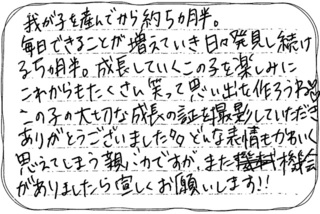 我が子を産んでから約5ヵ月半。
毎日できることが増えていき日々発見し続け
る5ヵ月半。成長していくこの子を楽しみに
これからもたくさん笑って思い出を作ろうね
この子の大切な成長の証を撮影していただき
ありがとうございました。どんな表情もかわいく
思えてしまう親バカですが、また機会
がありましたら宜しくお願いします!!